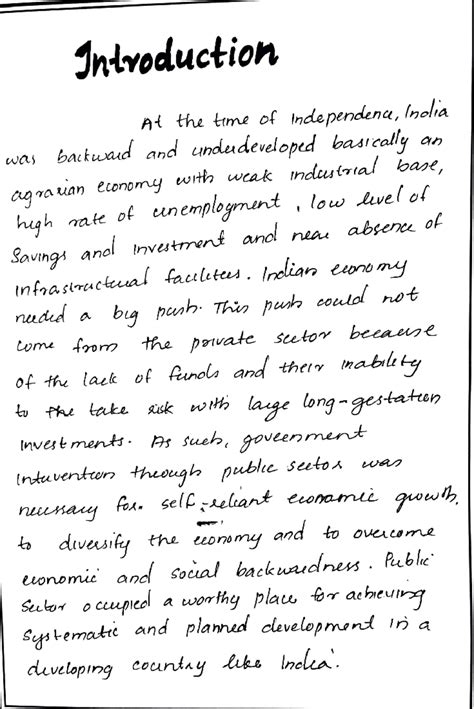 Introduction
At the time of independence, India
was backward and underdeveloped basically an
agrarian economy with weak industrial base,
high rate of unemployment, low level of
savings and investment and near absence of
infrastructural facilities. Indian economy
needed a big push. This push could not
come from the private sector because
of the lack of funds and their inability
to the take risk with large long-gestation
investments. As such, government
intervention through public sector was
necessary for self-reliant economic growth,
to diversify the economy and to overcome
economic and social backwardness. Public
Sector occupied a worthy place for achieving
systematic and planned development in a
developing country like India.